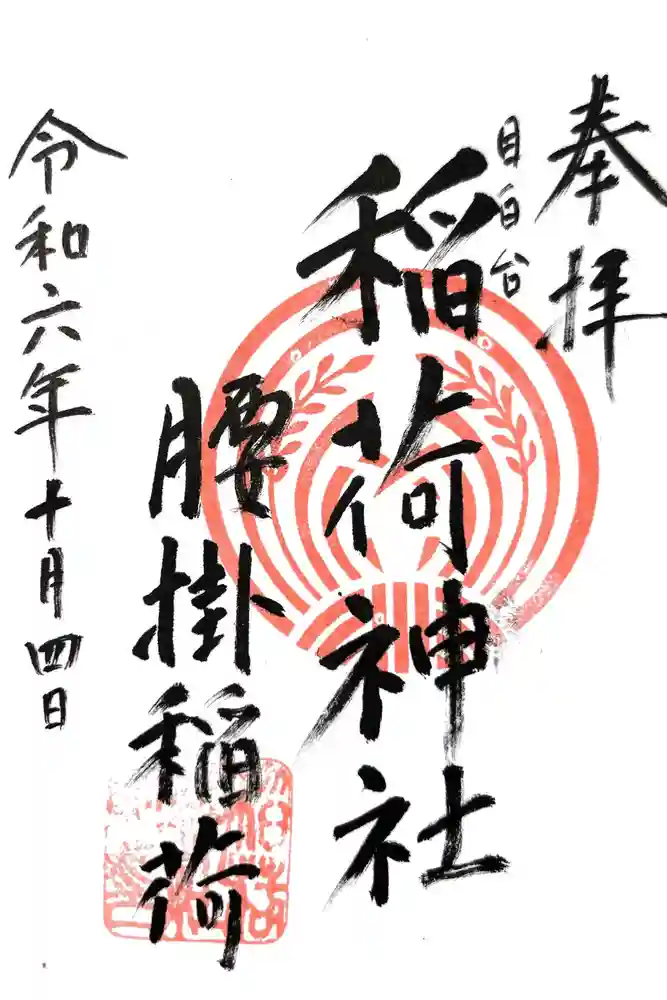 奉拝
目白台
稲荷神社
腰掛稲荷
令和六年十月四日